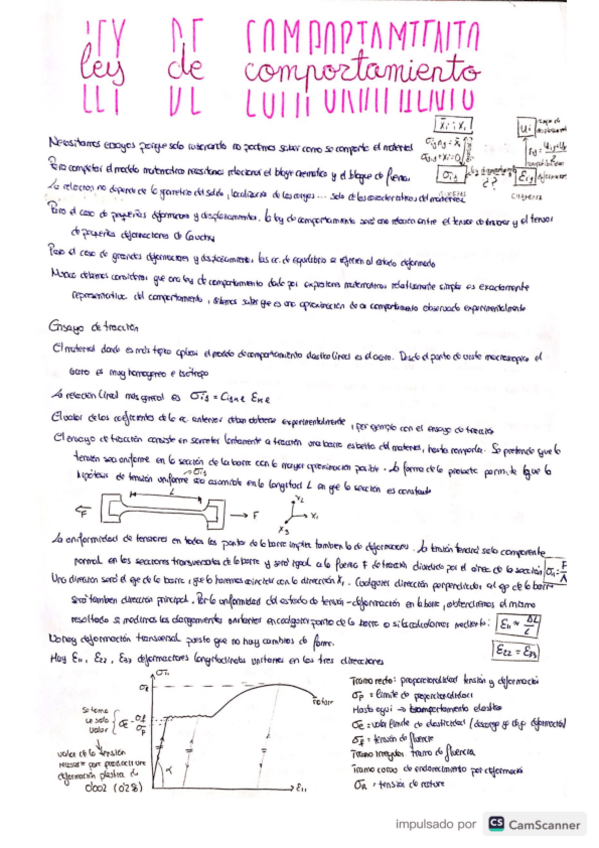 ley de comportamiento
Necesitamos ensayos porque solo razonando no podemos saber como se comporta el material
Para completar el modelo matematico necesitamos relacionar el bloque cinematico y el bloque de fuerzas
La relacion no depende de la geometria del solido, localización de las cargas... solo de las caracteristicas del material
Para el caso de pequeñas deformaciones y desplazamientos, la ley de comportamiento será una relacion entre el tensor de tensiones y el tensor
de pequeñas deformaciones de Cauchy
Para el caso de grandes deformaciones y desplazamientos, las ec. de equilibrio se refieren al estado deformado
Nunca debemos considerar que una ley de comportamiento dada por expresiones matematicas relativamente simples es exactamente
representativa del comportamiento, debemos saber que es una aproximación de un comportamiento observado experimentalmente
Ensayo de tracción
El material donde es más tipico aplicar el modelo de comportamiento elastico lineal es el acero. Desde el punto de vista macroscopico el
acero es muy homogeneo e isótropo
La relación lineal más general es
El valor de los coeficientes de la ec. anterior deben obtenerse experimentalmente, por ejemplo con el ensayo de tracción
El ensayo de tracción consiste en someter lentamente a tracción una barra esbelta del material, hasta romperla. Se pretende que la
tensión sea uniforme en la sección de la barra con la mayor aproximación posible. La forma de la probeta permite que la
hipótesis de tensión uniforme sea asumible en la longitud L en que la sección es constante
L
F
F
X₂
X₁
X₃
La uniformidad de tensiones en todos los puntos de la barra implica tambien la de deformaciones. La tensión tendrá solo componente
normal en las secciones transversales de la barra y será igual a la fuerza F de tracción dividida por el area de la sección
Una dirección será el eje de la barra, que lo haremos coincidir con la dirección X₁. Cualquier dirección perpendicular al eje de la barra
será tambien dirección principal. Por la uniformidad del estado de tensión-deformación en la barra, obtendremos el mismo
resultado si medimos los alargamientos unitarios en cualquier punto de la barra o si la calculamos mediante:
No hay deformación transversal puesto que no hay cambios de forma.
Hay ε₁₁, ε₂₂, ε₃₃ deformaciones longitudinales unitarias en las tres direcciones
σ₁₁
rotura
ε₁₁
α
Se toma
un solo
valor
valor de la tensión
necesario para producir una
deformación plástica de
0'002 (0'2%)
Tramo recto: proporcionalidad tensión y deformación
σp = limite de proporcionalidad
Hasta aqui → comportamiento elastico
σE = valor limite de elasticidad
σf = tensión de fluencia
Tramo irregular: tramo de fluencia
Tramo curvo: de endurecimiento por deformación
σR = tensión de rotura
impulsado por CS CamScanner